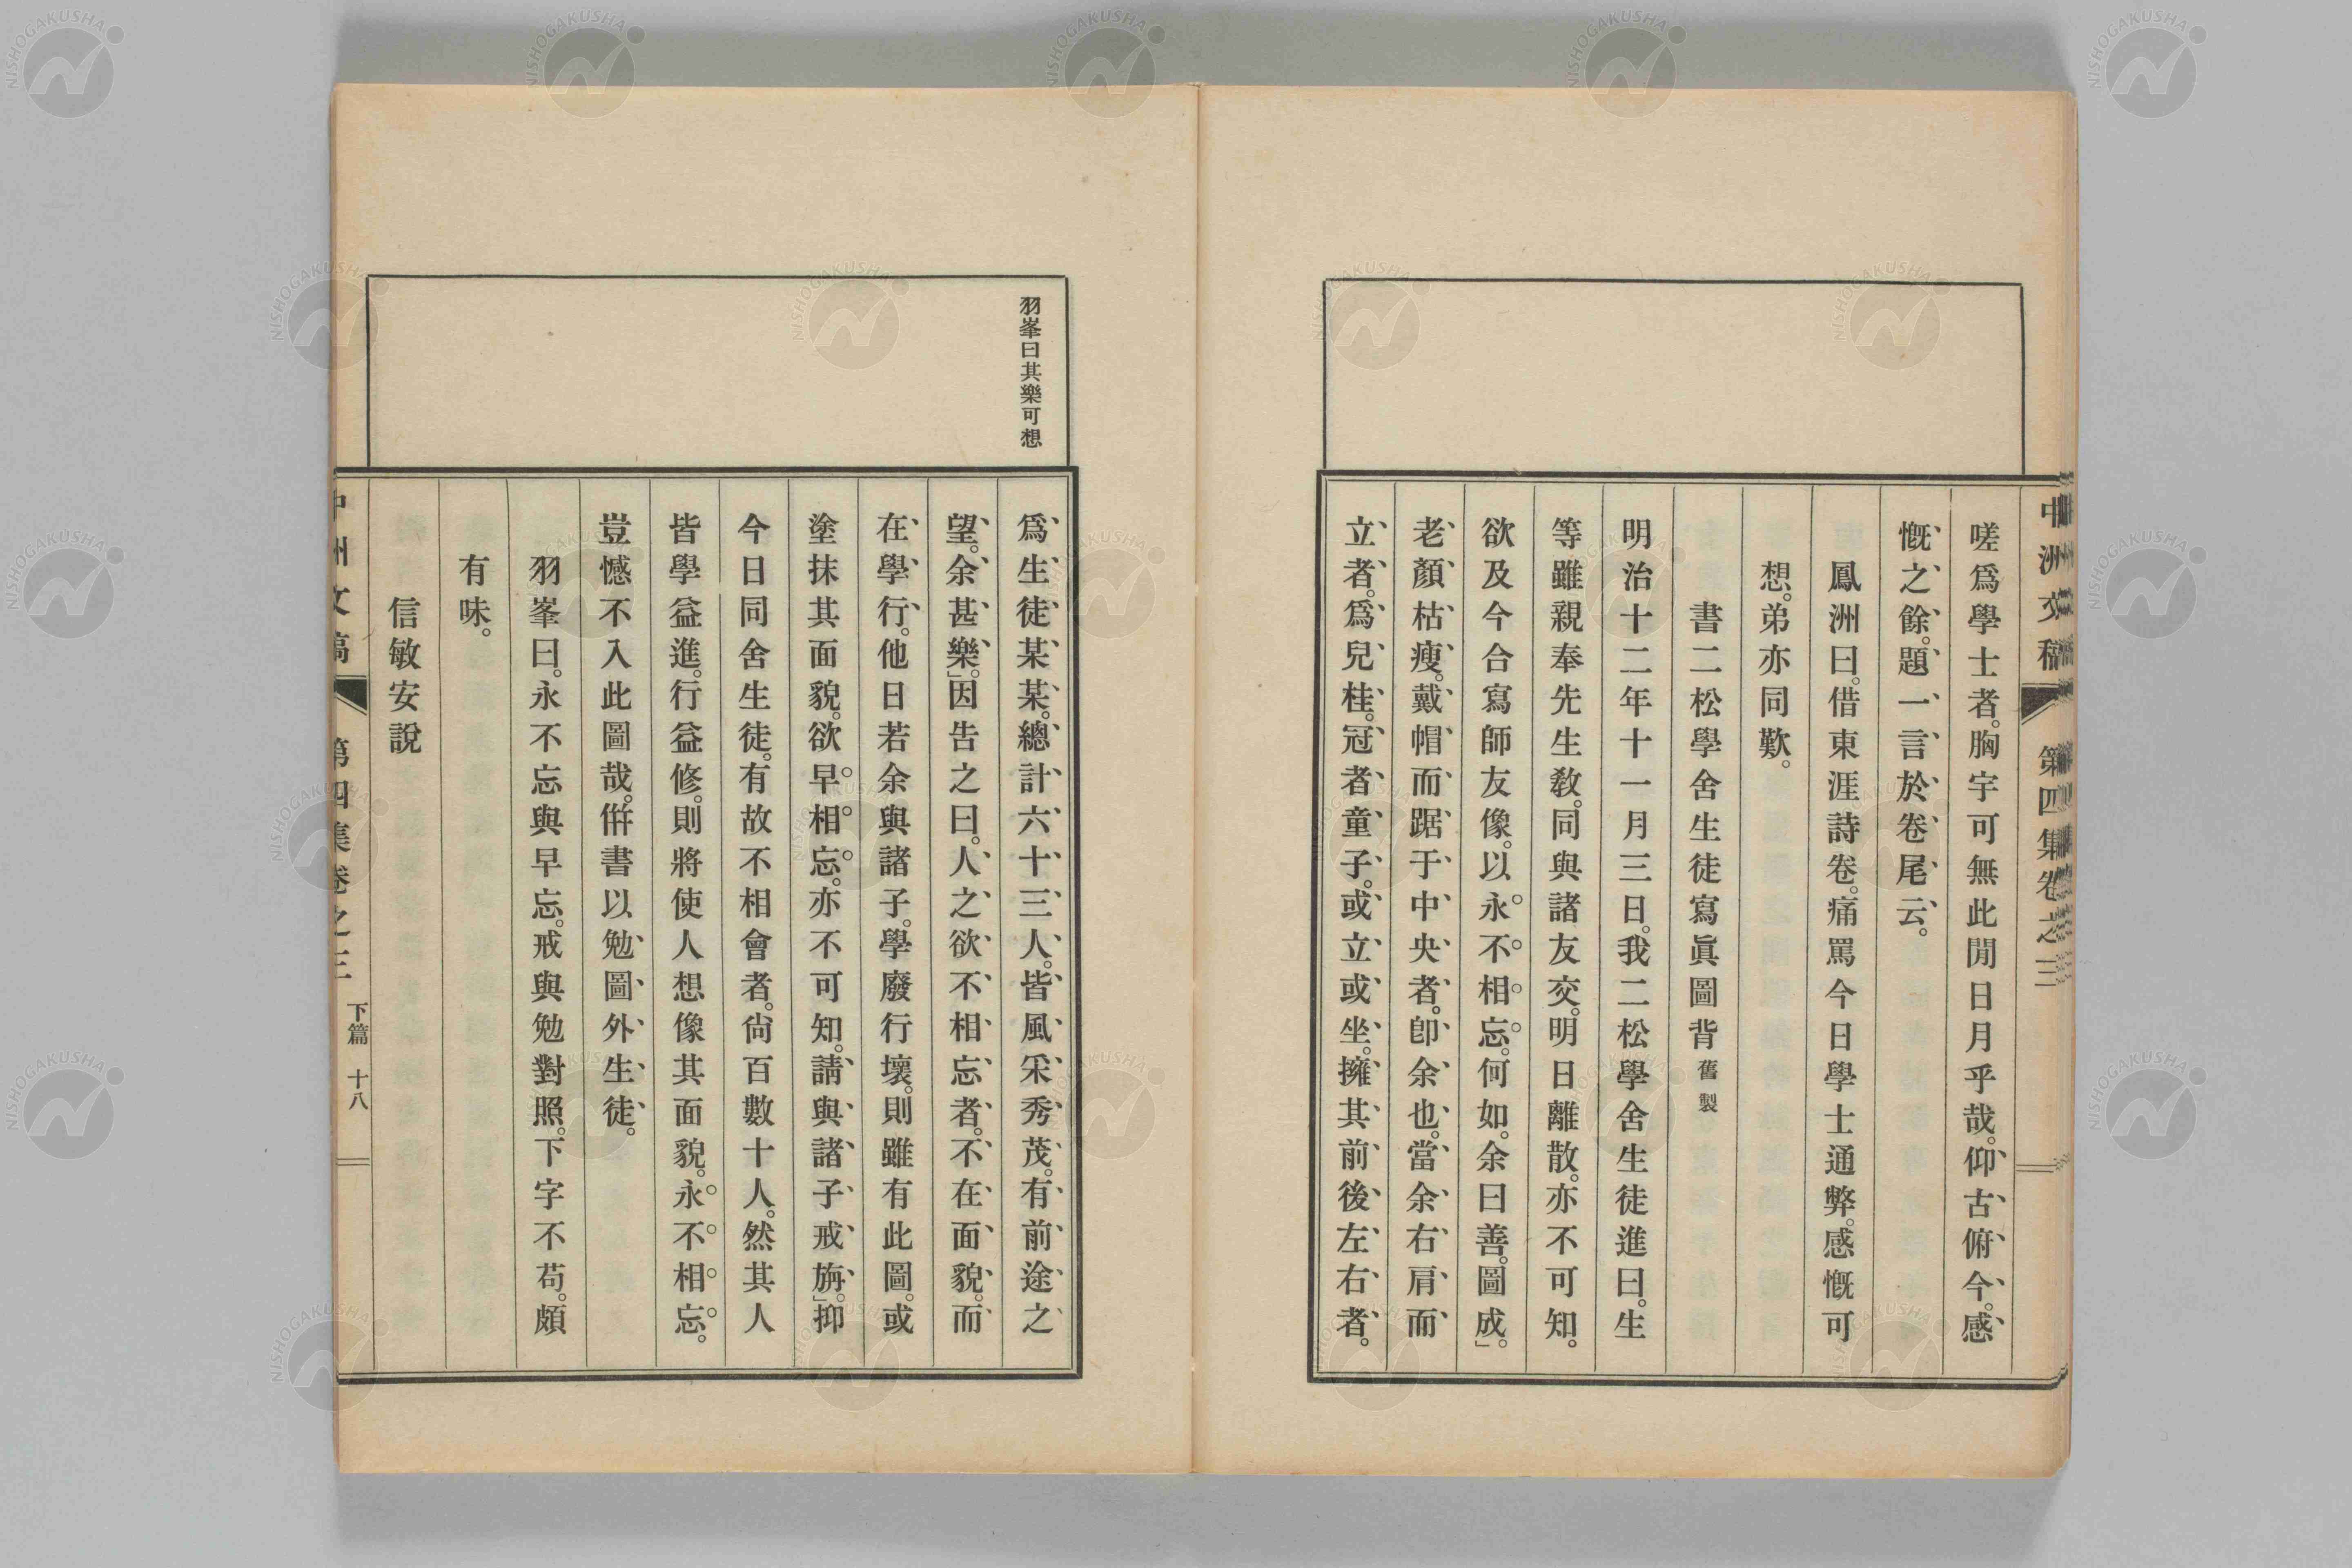 中洲文稿　第四集卷之三
嗟爲學士者。胸宇可無此閒日月乎哉。仰古俯今。感
慨之餘。題一言於卷尾云。
鳳洲曰。借東涯詩卷。痛罵今日學士通弊。感慨可
想。弟亦同歎。
書二松學舍生徒寫眞圖背舊製
明治十二年十一月三日。我二松學舍生徒進曰。生
等雖親奉先生敎。同與諸友交。明日離散。亦不可知。
欲及今合寫師友像。以永不相忘。何如。余曰善。圖成」。
老顏枯瘦。戴帽而踞于中央者。卽余也。當余右肩而
立者。爲兒桂。冠者童子。或立或坐。擁其前後左右者。
羽峯曰其樂可想
爲生徒某某。總計六十三人。皆風采秀茂。有前途之
望。余甚樂」。因告之曰。人之欲不相忘者。不在面貌。而
在學行。他日若余與諸子。學廢行壞。則雖有此圖。或
塗抹其面貌。欲早相忘。亦不可知。請與諸子戒旃」。抑
今日同舍生徒。有故不相會者。尙百數十人。然其人
皆學益進。行益修。則將使人想像其面貌。永不相忘。
豈憾不入此圖哉。併書以勉圖外生徒。
羽峯曰。永不忘與早忘。戒與勉對照。下字不苟。頗
有味。
信敏安說
中洲文稿　第四集卷之三　下篇　十八
NISHOGAKUSHA